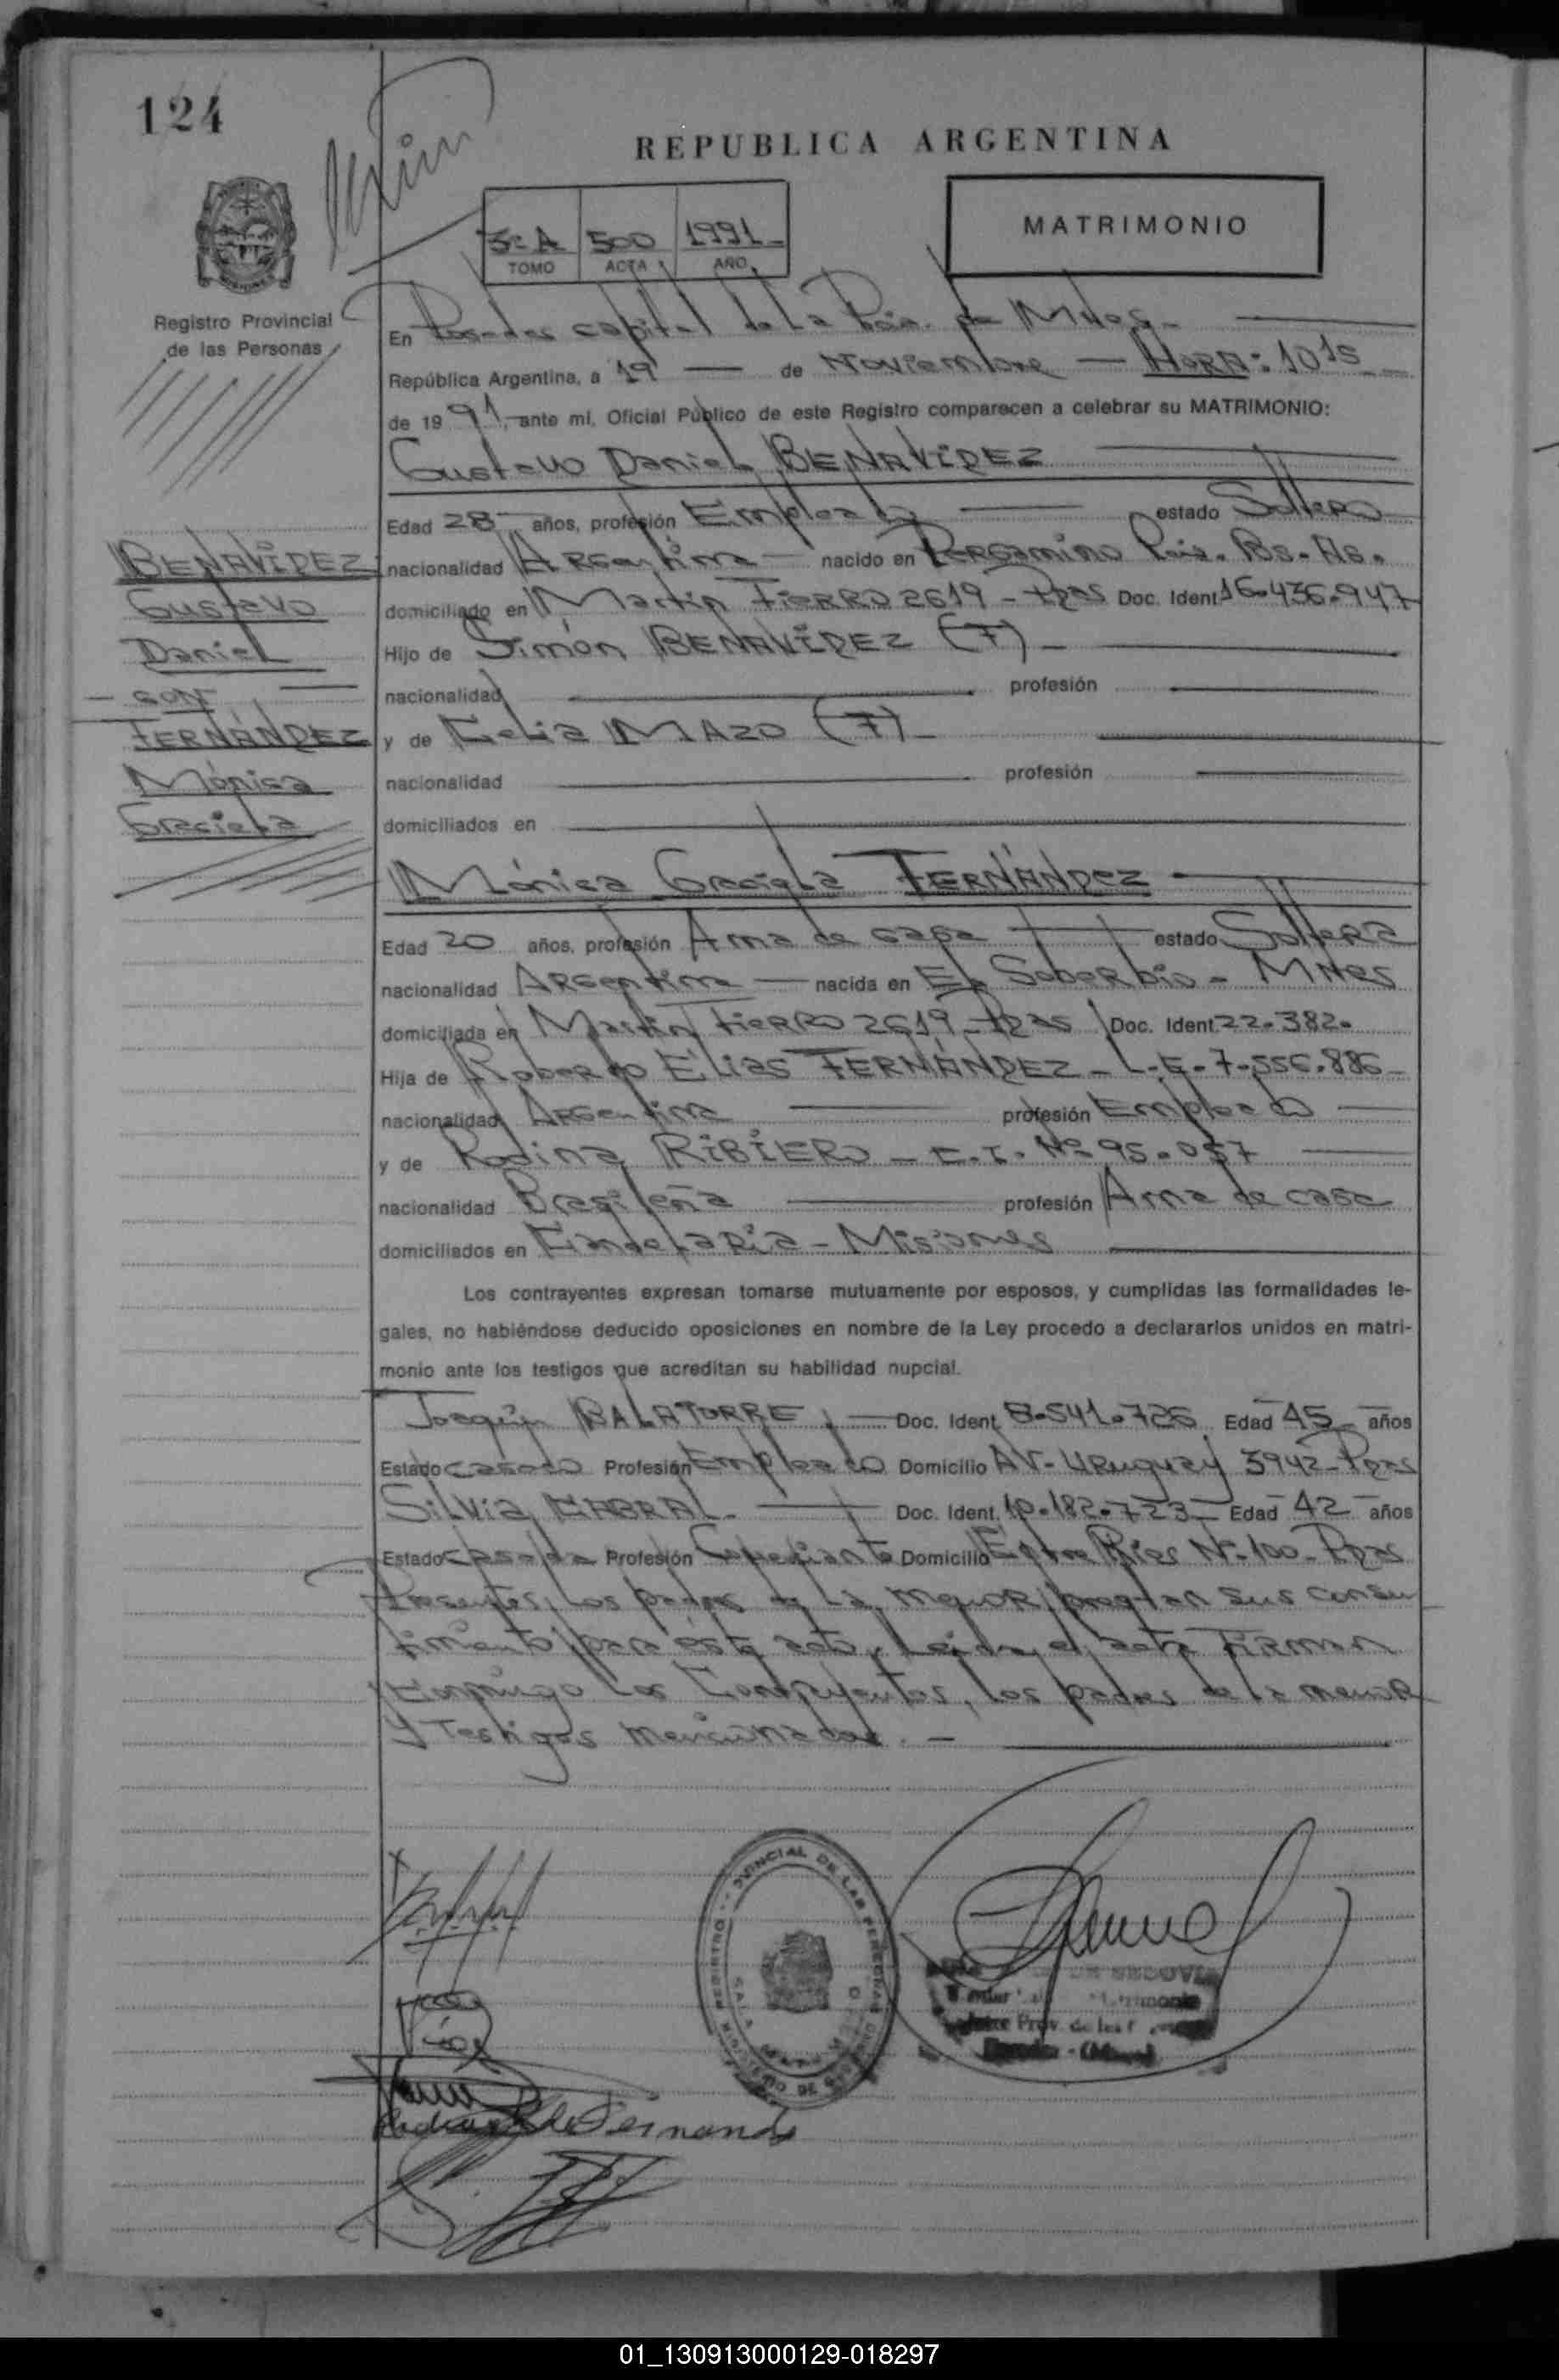 124
REPUBLICA ARGENTINA
3º A 500 1991
TOMO ACTA AÑO
MATRIMONIO
Registro Provincial
de las Personas
En Posadas capital de la Pcia. de Mnes.
República Argentina, a 19 de Noviembre HORA: 10 15
de 1991, ante mí, Oficial Público de este Registro comparecen a celebrar su MATRIMONIO:
Gustavo Daniel BENAVIDEZ
Edad 28 años, profesión Empleado estado Soltero
BENAVIDEZ
Gustavo
Daniel
con
FERNÁNDEZ
Mónica
Graciela
nacionalidad Argentina nacido en Pergamino Pcia. Bs. As.
domiciliado en Martín Fierro 2619 - Pdas Doc. Ident. 16.436.947
Hijo de Simón BENAVIDEZ (F)
nacionalidad profesión
y de Celia MAZO (F)
nacionalidad profesión
domiciliados en
Mónica Graciela FERNÁNDEZ
Edad 20 años, profesión Ama de casa estado Soltera
nacionalidad Argentina nacida en El Soberbio - Mnes
domiciliada en Martín Fierro 2619 - Pdas Doc. Ident. 22.382.
Hija de Roberto Elias FERNÁNDEZ - L.E. 7.556.886
nacionalidad Argentina profesión Empleado
y de Rodina RIBIERO - C.I. Nº 95.057
nacionalidad Brasileña profesión Ama de casa
domiciliados en Candelaria - Misiones
Los contrayentes expresan tomarse mutuamente por esposos, y cumplidas las formalidades le-
gales, no habiéndose deducido oposiciones en nombre de la Ley procedo a declararlos unidos en matri-
monio ante los testigos que acreditan su habilidad nupcial.
Joaquín BALATORRE Doc. Ident. 8.541.726 Edad 45 años
Estado casado Profesión Empleado Domicilio AV. Uruguay 3942 - Pdas
Silvia CABRAL Doc. Ident. 10.182.723 Edad 42 años
Estado casada Profesión Comerciante Domicilio Entre Ríos Nº 100 - Pdas
Presentes, los padres de la menor, prestan sus consen
timiento para éste acto, Leída el acta FIRMAN
conmigo los Contrayentes, los padres de la menor
y Testigos mencionados.
REGISTRO PROVINCIAL DE LAS PERSONAS
de Fernande
DE SEGOVIA
01_130913000129-018297